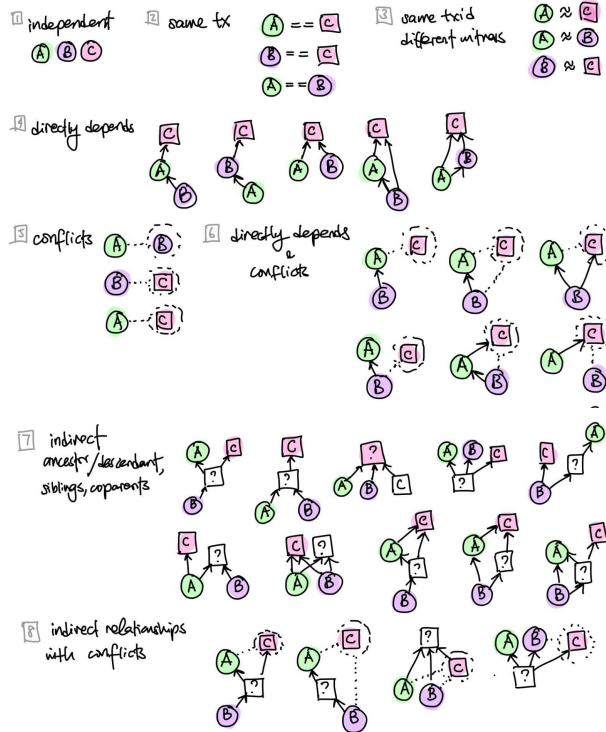 1 independent
A B C
2 same tx
A == C
B == C
A == B
3 same txid
different witness
A ≈ C
A ≈ B
B ≈ C
4 directly depends
C A B
C B A
C A B
C A B
C A B
5 conflicts
A B
B C
A C
6 directly depends
&
conflicts
A C B
A C B
A C B
A C B
C A B
C A B
7 indirect
ancestor/descendant,
siblings, coparents
A C ? B
C ? A B
? A B C
A B C ?
C A ? B
C ? A B
C ? A B
C A ? B
C A ? B
C A ? B
8 indirect relationships
with conflicts
C A ? B
C A ? B
? C A B
A B C ?